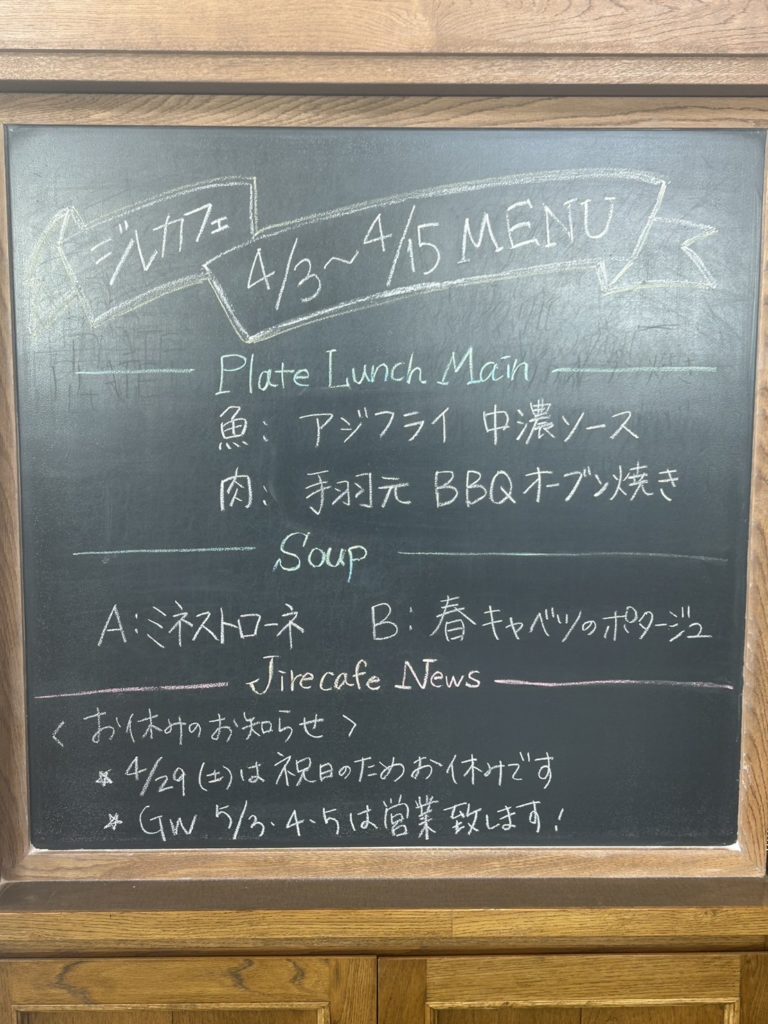 ジルカフェ 4/3~4/15 MENU
Plate Lunch Main
魚: アジフライ 中濃ソース
肉: 手羽元 BBQオーブン焼き
Soup
A:ミネストローネ B: 春キャベツのポタージュ
Jirecafe News
〈 お休みのお知らせ 〉
☆ 4/29(土)は祝日のためお休みです
☆ GW 5/3・4・5は営業致します!